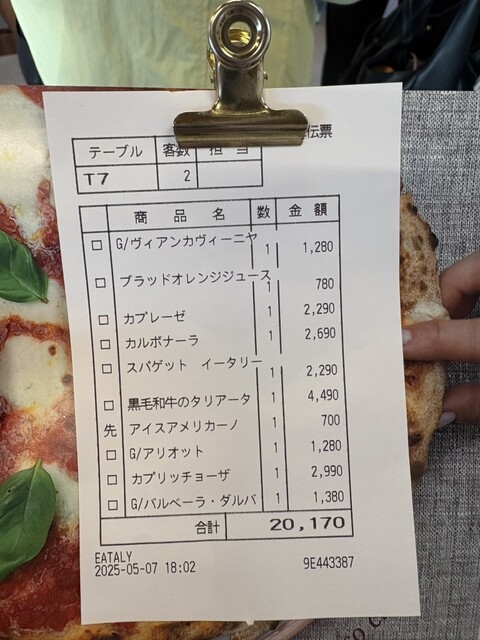 伝票
テーブル 客数 担 当
T7 2
商 品 名 数 金 額
□ G/ヴィアンカヴィーニヤ 1 1,280
□ ブラッドオレンジジュース 1 780
□ カプレーゼ 1 2,290
□ カルボナーラ 1 2,690
□ スパゲット イータリー 1 2,290
□ 黒毛和牛のタリアータ 1 4,490
先 アイスアメリカーノ 1 700
□ G/アリオット 1 1,280
□ カプリッチョーザ 1 2,990
□ G/バルベーラ・ダルバ 1 1,380
合計 20,170
EATALY
2025-05-07 18:02 9E443387